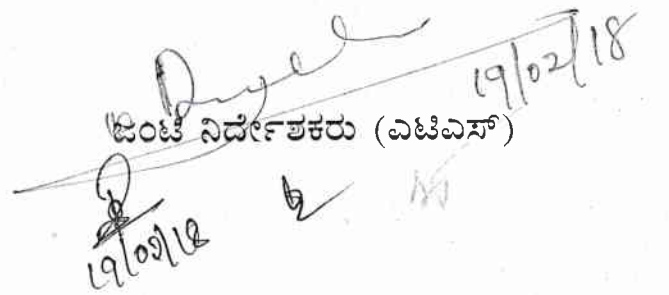 19/02/18
ಜಂಟಿ ನಿರ್ದೇಶಕರು (ಎಟಿಎಸ್)
19/02/18